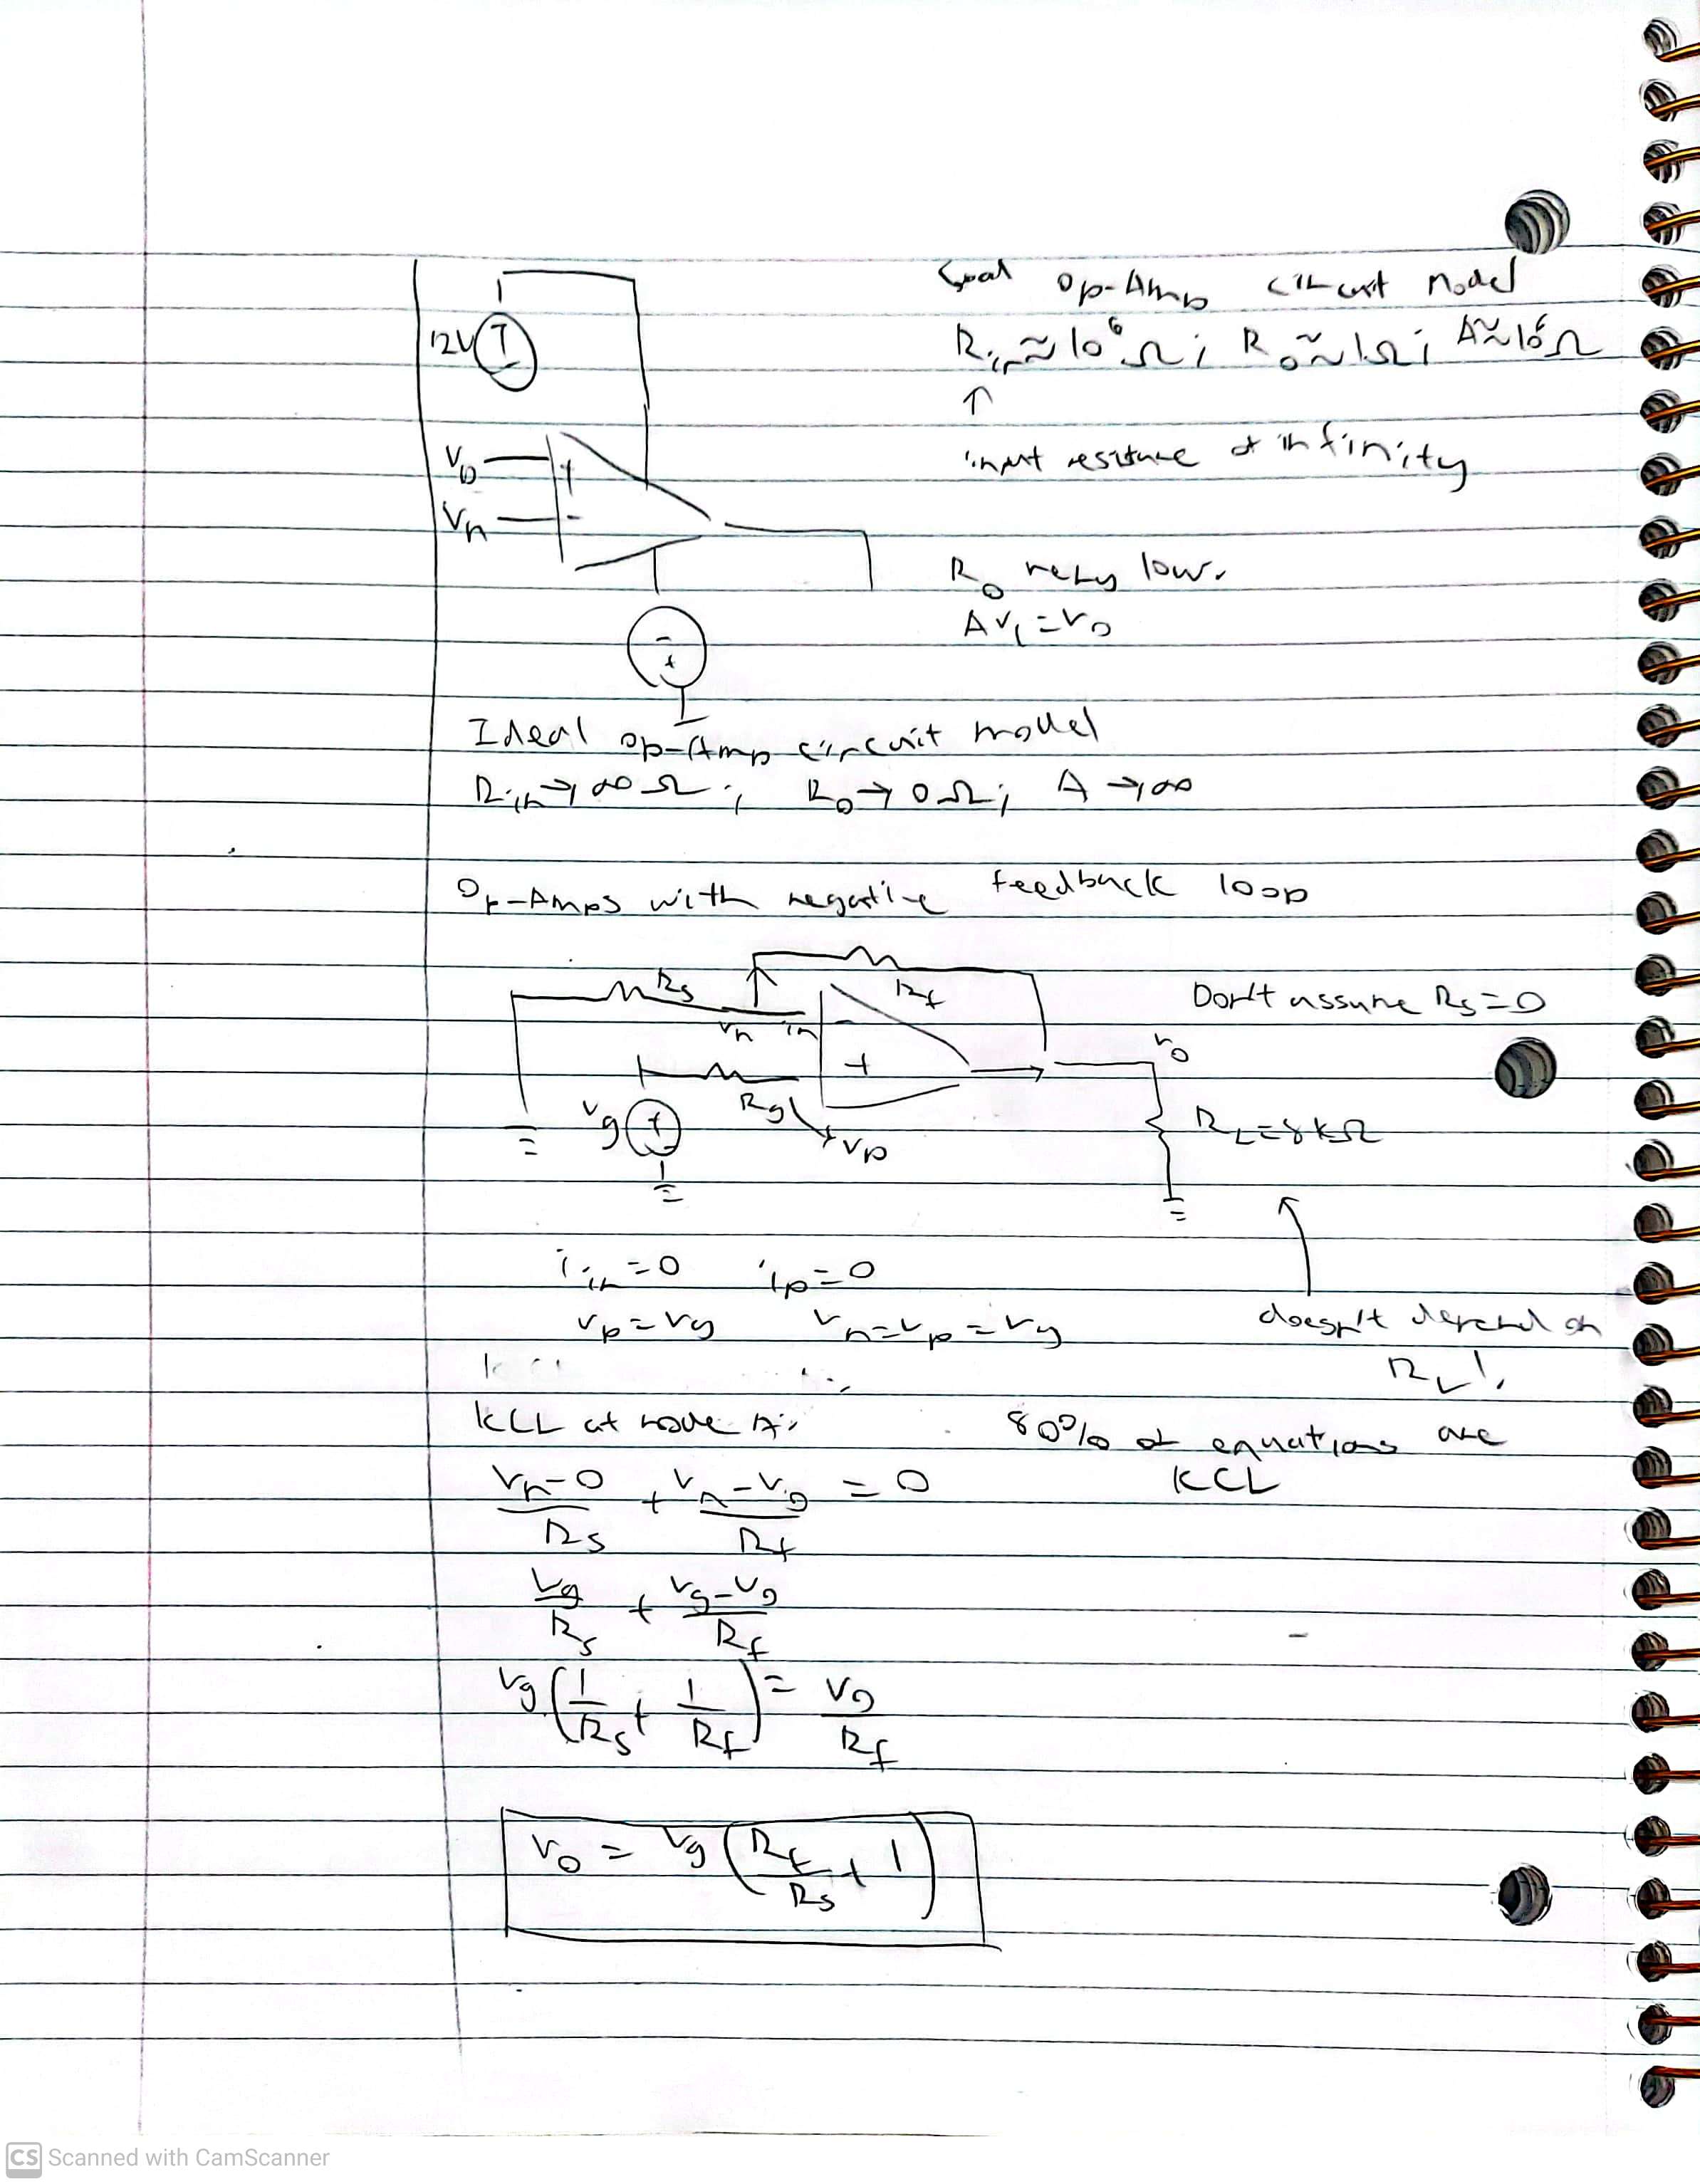 Goal Op-Amp circuit model
12V
R_in ≈ 10^6 Ω ; R_o ≈ 1Ω ; A ≈ 10^6 Ω
↑
input resistance of infinity
V_p +
V_n -
R_o very low.
A v_i = v_o
- +
Ideal op-Amp circuit model
R_in → ∞ Ω ; R_o → 0 Ω ; A → ∞
Op-Amps with negative feedback loop
R_s R_f
Don't assume R_s = 0
v_n in -
+
v_o
v_g + - R_g v_p
R_L = 8kΩ
i_in = 0 i_p = 0
v_p = v_g v_n = v_p = v_g
doesn't depend on
R_L!
KCL at node A:
80% of equations are
KCL
(v_n - 0)/R_s + (v_n - v_o)/R_f = 0
v_g/R_s + (v_g - v_o)/R_f
v_g (1/R_s + 1/R_f) = v_o/R_f
v_o = v_g (R_f/R_s + 1)
CS Scanned with CamScanner